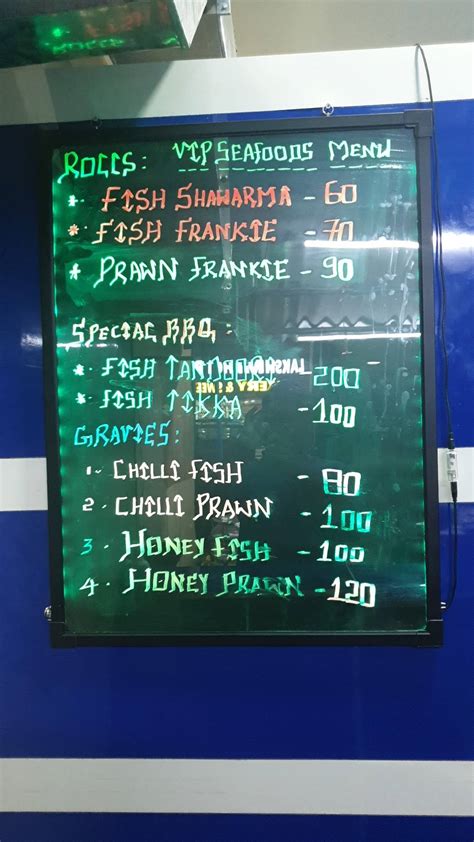 VIP SEAFOODS MENU
ROLLS:
* FISH SHAWARMA - 60
* FISH FRANKIE - 70
* PRAWN FRANKIE - 90
SPECIAL BBQ:
* FISH TANDOORI - 200
* FISH TIKKA - 100
GRAVIES:
1- CHILLI FISH - 80
2- CHILLI PRAWN - 100
3- HONEY FISH - 100
4. HONEY PRAWN - 120